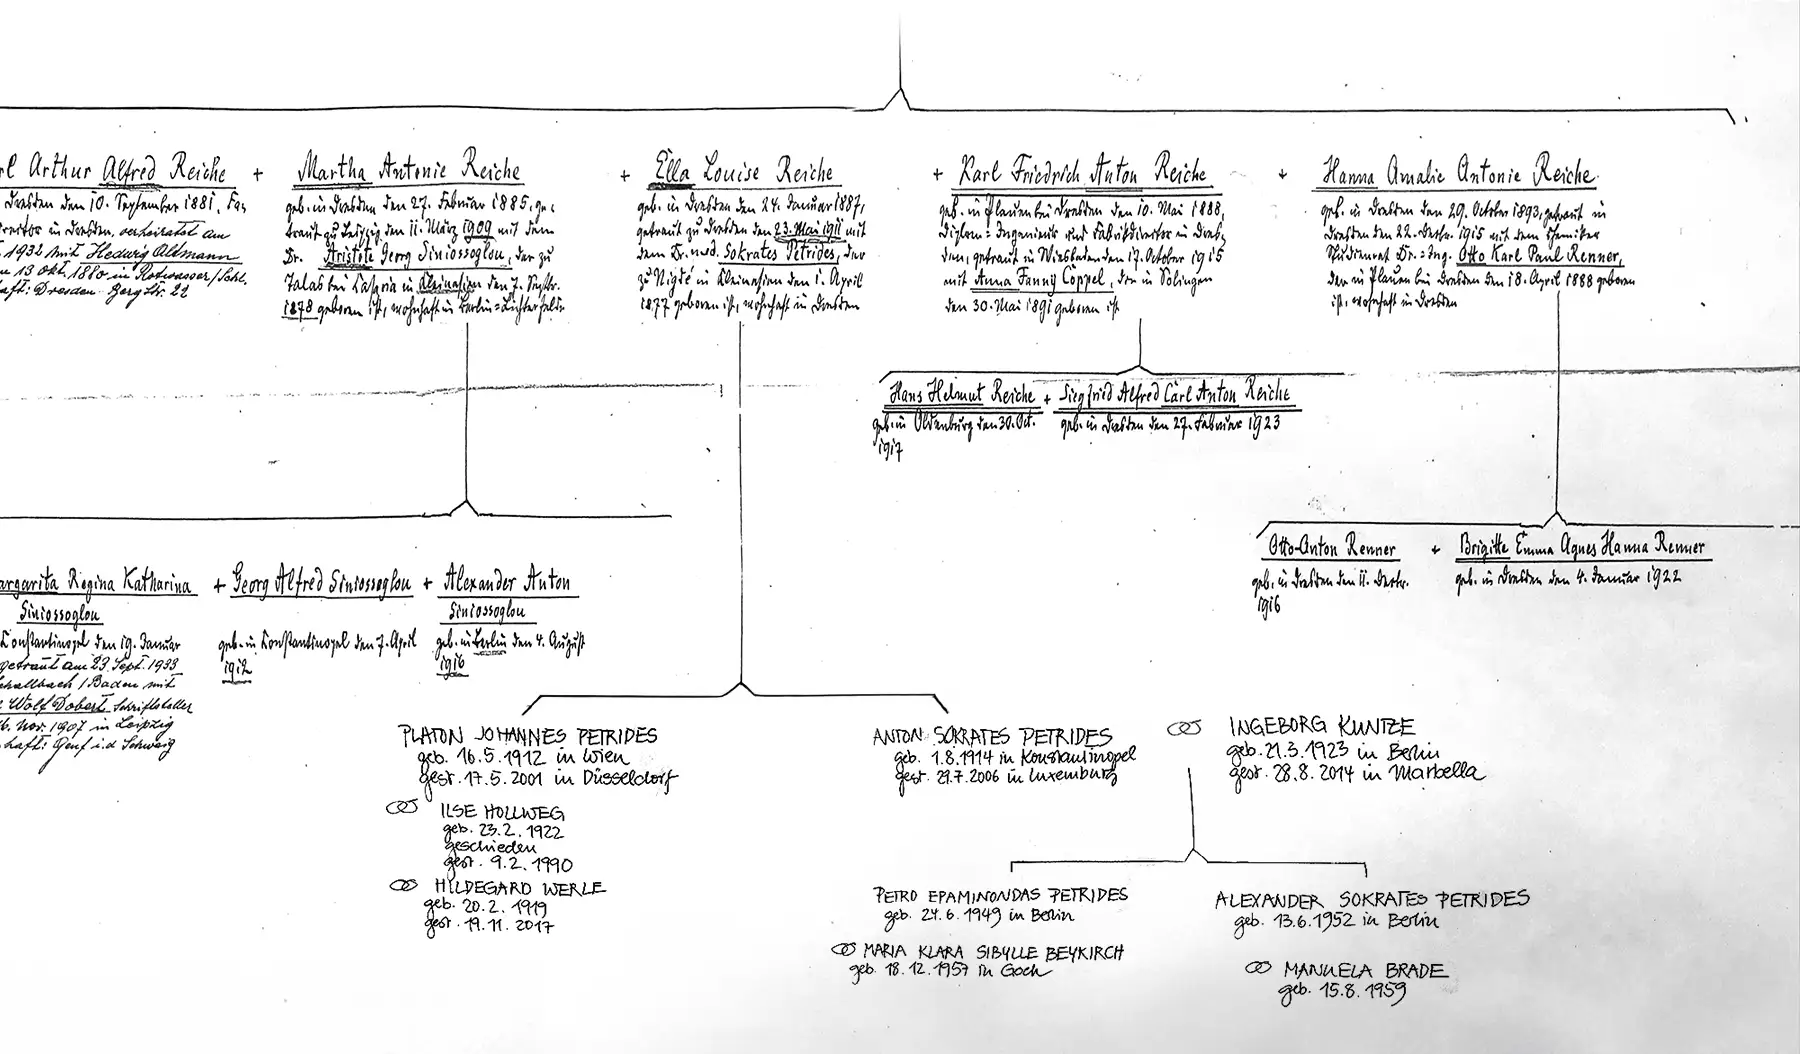 rl Arthur Alfred Reiche
Dresden den 10. September 1881, Fa-
in Dresden, verheiratet am
1932 mit Hedwig Altmann
13 Okt. 1880 in Rotwasser/Schl.
haft: Dresden Berg Str. 22
+ Martha Antonie Reiche
geb. in Dresden den 27. Februar 1885, ge-
traut zu Leipzig den 11. März 1909 mit dem
Dr. Aristote Georg Siniossoglou, der zu
Talas bei in Kleinasien den 7. Septbr.
1878 geboren ist, wohnhaft in Berlin-Lichterfelde
+ Ella Louise Reiche
geb. in Dresden den 24. Januar 1887,
getraut zu Dresden den 23. Mai 1911 mit
dem Dr. med. Sokrates Petrides, der
zu Nigde in Kleinasien den 1. April
1877 geboren ist, wohnhaft in Dresden
+ Karl Friedrich Anton Reiche
geb. in Plauen bei Dresden den 10. Mai 1888,
Diplom-Ingenieur und Fabrikdirektor in Dres-
den, getraut in Wiesbaden den 17. October 1915
mit Anna Fanny Coppel, die in Solingen
den 30. Mai 1891 geboren ist
+ Hanna Amalie Antonie Reiche
geb. in Dresden den 29. October 1893, getraut in
Dresden den 22. Dezbr. 1915 mit dem Chemiker
Studienrat Dr.-Ing. Otto Karl Paul Renner,
der in Plauen bei Dresden den 18. April 1888 geboren
ist, wohnhaft in Dresden
Hans Helmut Reiche + Siegfried Alfred Carl Anton Reiche
geb. in Oldenburg den 30. Oct.
1917
geb. in Dresden den 27. Februar 1923
Otto-Anton Renner + Brigitte Emma Agnes Hanna Renner
geb. in Dresden den 11. Dezbr.
1916
geb. in Dresden den 4. Januar 1922
argarita Regina Katharina
Siniossoglou
Constantinopel den 19. Januar
getraut am 23. Sept. 1933
/ Baden mit
Wolf Dobert Schriftsteller
6. Nov. 1907 in Leipzig
haft: Genf i.d Schweiz
+ Georg Alfred Siniossoglou
geb. in Constantinopel den 7. April
1912
+ Alexander Anton
Siniossoglou
geb. in Berlin den 4. August
1916
PLATON JOHANNES PETRIDES
geb. 16.5.1912 in Wien
gest. 17.5.2001 in Düsseldorf
ILSE HOLLWEG
geb. 23.2.1922
geschieden
gest. 9.2.1990
HILDEGARD WERLE
geb. 20.2.1919
gest. 19.11.2017
ANTON SOKRATES PETRIDES
geb. 1.8.1914 in Konstantinopel
gest. 29.7.2006 in Luxemburg
INGEBORG KUNTZE
geb. 21.3.1923 in Berlin
gest. 28.8.2014 in Marbella
PETRO EPAMINONDAS PETRIDES
geb. 24.6.1949 in Berlin
MARIA KLARA SIBYLLE BEYKIRCH
geb. 18.12.1957 in Goch
ALEXANDER SOKRATES PETRIDES
geb. 13.6.1952 in Berlin
MANUELA BRADE
geb. 15.8.1959